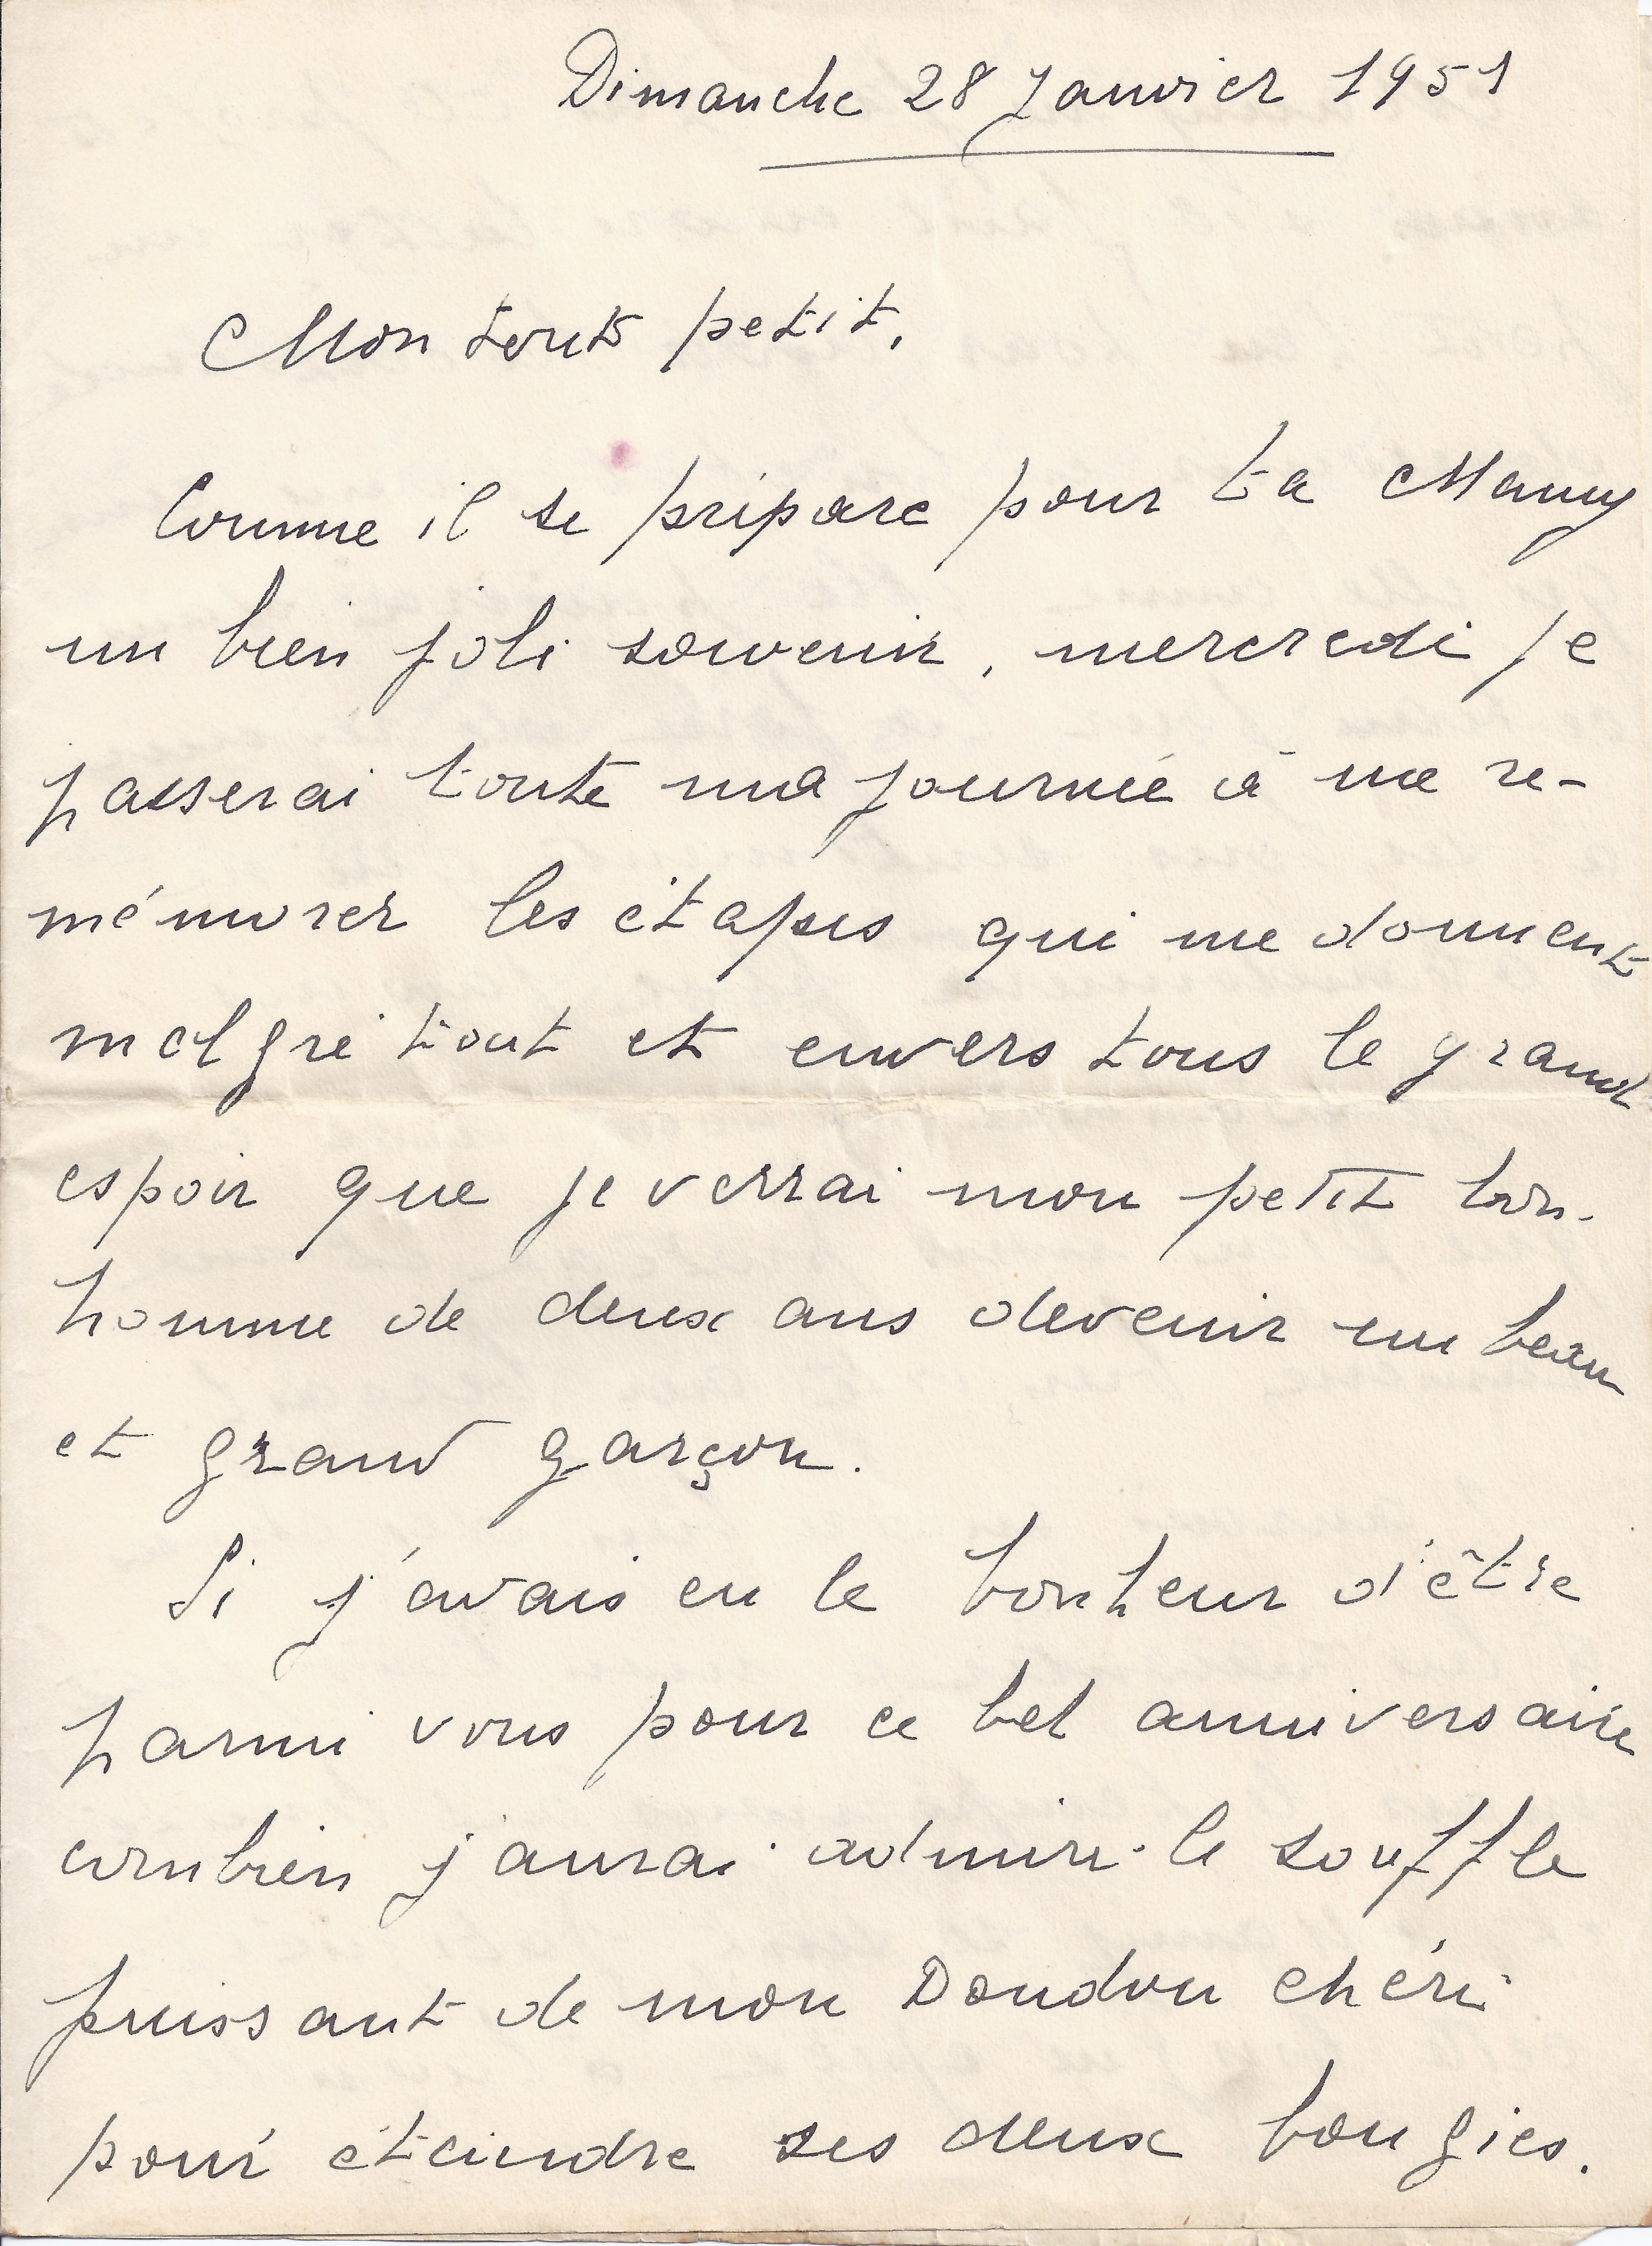 Dimanche 28 Janvier 1951
Mon touts petit,
Comme il se prépare pour ta Mamy
un bien joli souvenir, mercredi je
passerai toute ma journée à me re-
mémorer les étapes qui me donnent
malgré tout et envers tous le grand
espoir que je verrai mon petit bon-
homme de deux ans devenir un beau
et grand garçon.
Si j'avais eu le bonheur d'être
parmi vous pour ce bel anniversaire
combien j'aurai admiré le souffle
puissant de mon Doudou chéri
pour éteindre ses deux bougies.